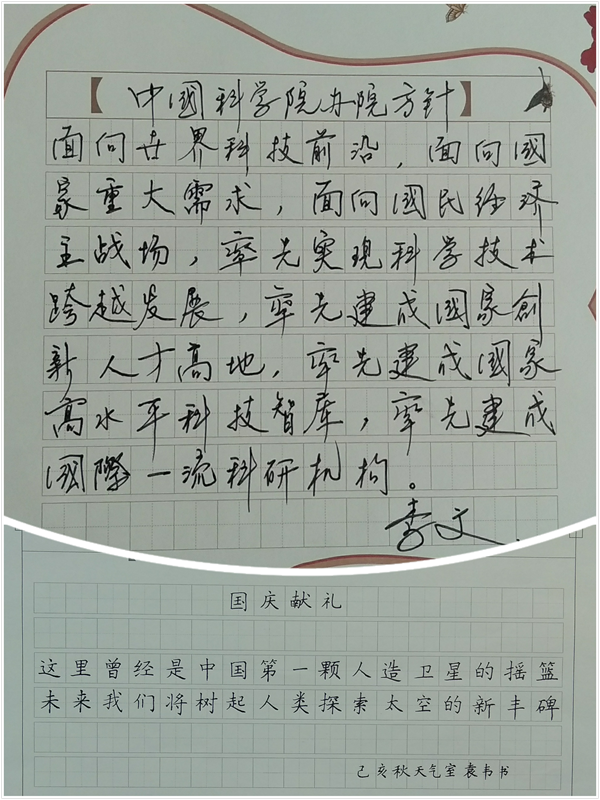 【中國科学院办院方针】
面向世界科技前沿，面向國
家重大需求，面向國民经济
主战场，率先实现科学技术
跨越发展，率先建成國家创
新人才高地，率先建成國家
高水平科技智库，率先建成
國際一流科研机构。
李文
国庆献礼
这里曾经是中国第一颗人造卫星的摇篮
未来我们将树起人类探索太空的新丰碑
己亥秋天气室袁韦书